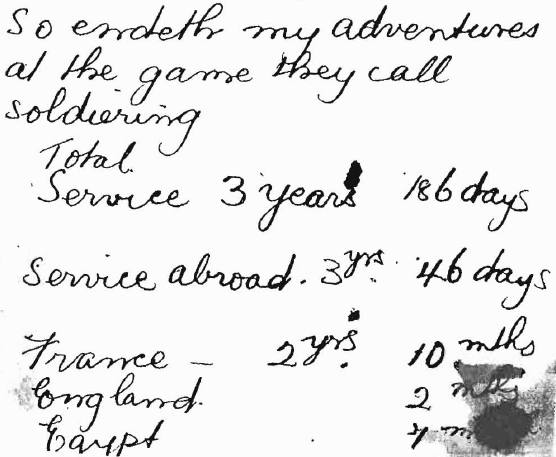 So endeth my adventures
at the game they call
soldiering
Total
Service 3 years 186 days
Service abroad. 3 yrs. 46 days
France - 2 yrs. 10 mths
England. 2 mths
Egypt